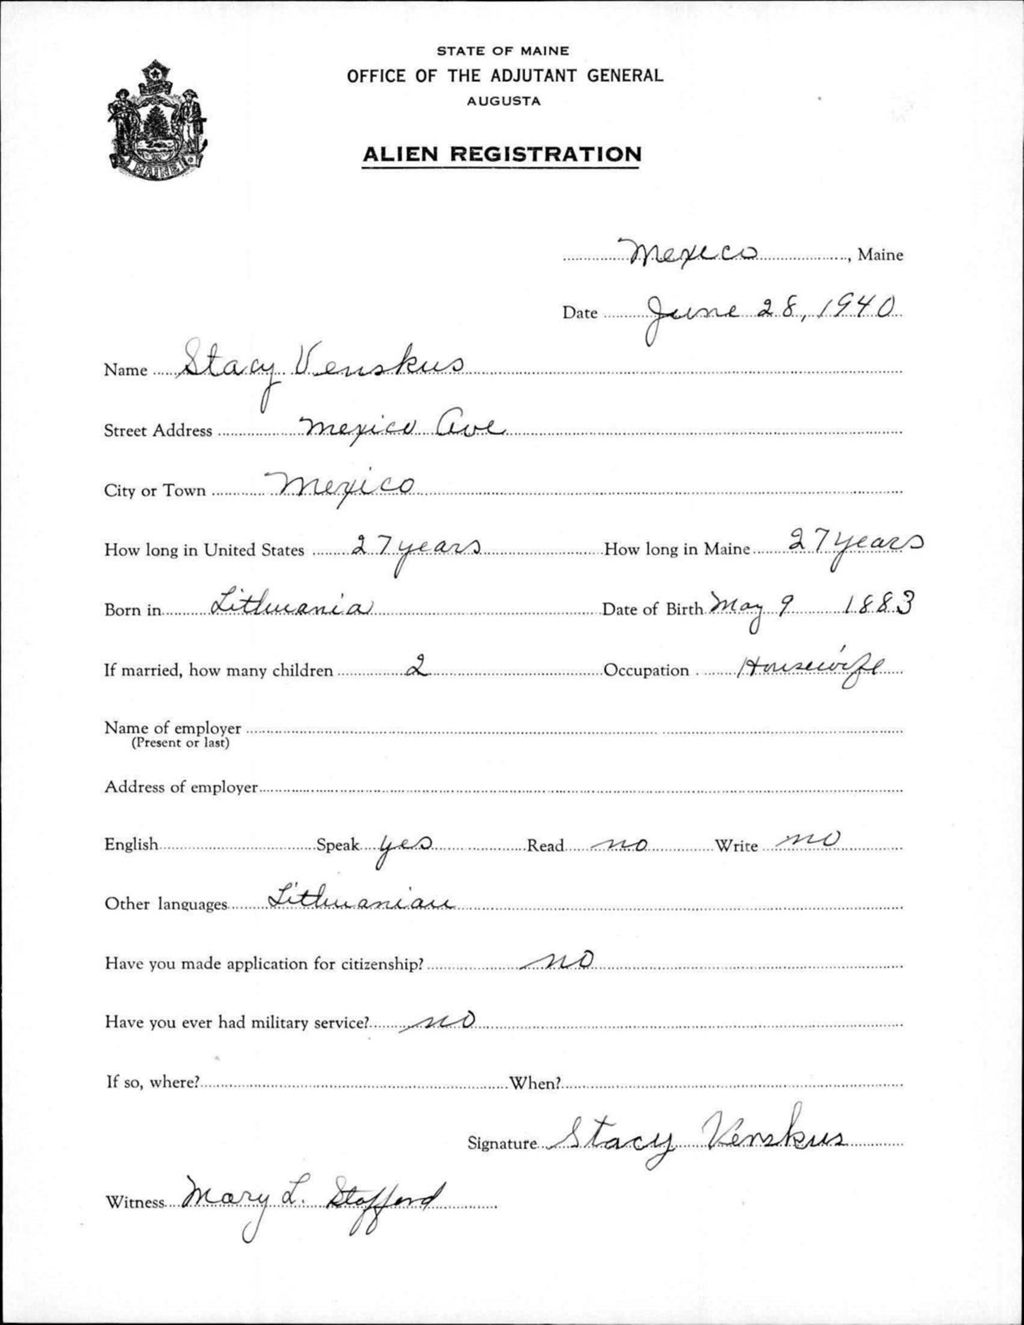 STATE OF MAINE
OFFICE OF THE ADJUTANT GENERAL
AUGUSTA
ALIEN REGISTRATION
MAINE
Mexico, Maine
Date June 28, 1940
Name Stacy Venskus
Street Address Mexico Ave
City or Town Mexico
How long in United States 27 years How long in Maine 27 years
Born in Lithuania Date of Birth May 9 1883
If married, how many children 2 Occupation Housewife
Name of employer
(Present or last)
Address of employer
English Speak yes Read no Write no
Other languages Lithuanian
Have you made application for citizenship? no
Have you ever had military service? no
If so, where? When?
Signature Stacy Venskus
Witness Mary L. Stafford